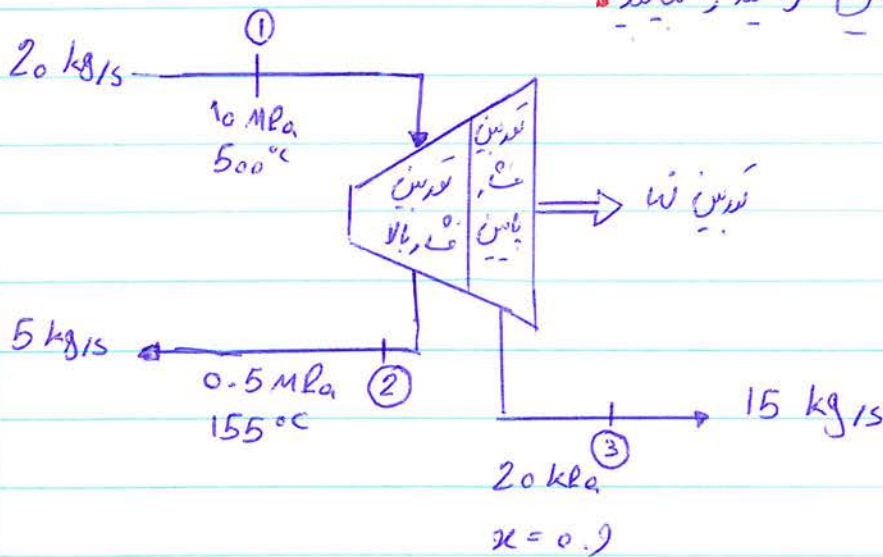 ①
20 kg/s
10 MPa
500°C
توربین فشار بالا
توربین فشار پایین
توربین ẇ
5 kg/s
0.5 MPa ②
155°C
15 kg/s
③
20 kPa
x = 0.9